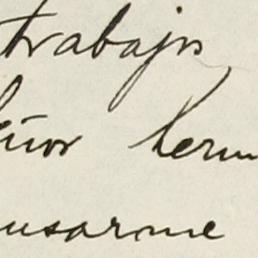 trabajos
herm
usarme